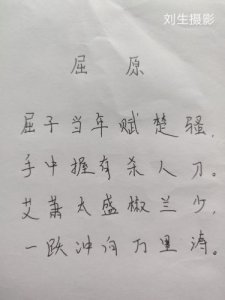 刘生摄影
屈原
屈子当年赋楚骚,
手中握有杀人刀。
艾萧太盛椒兰少,
一跃冲向万里涛。